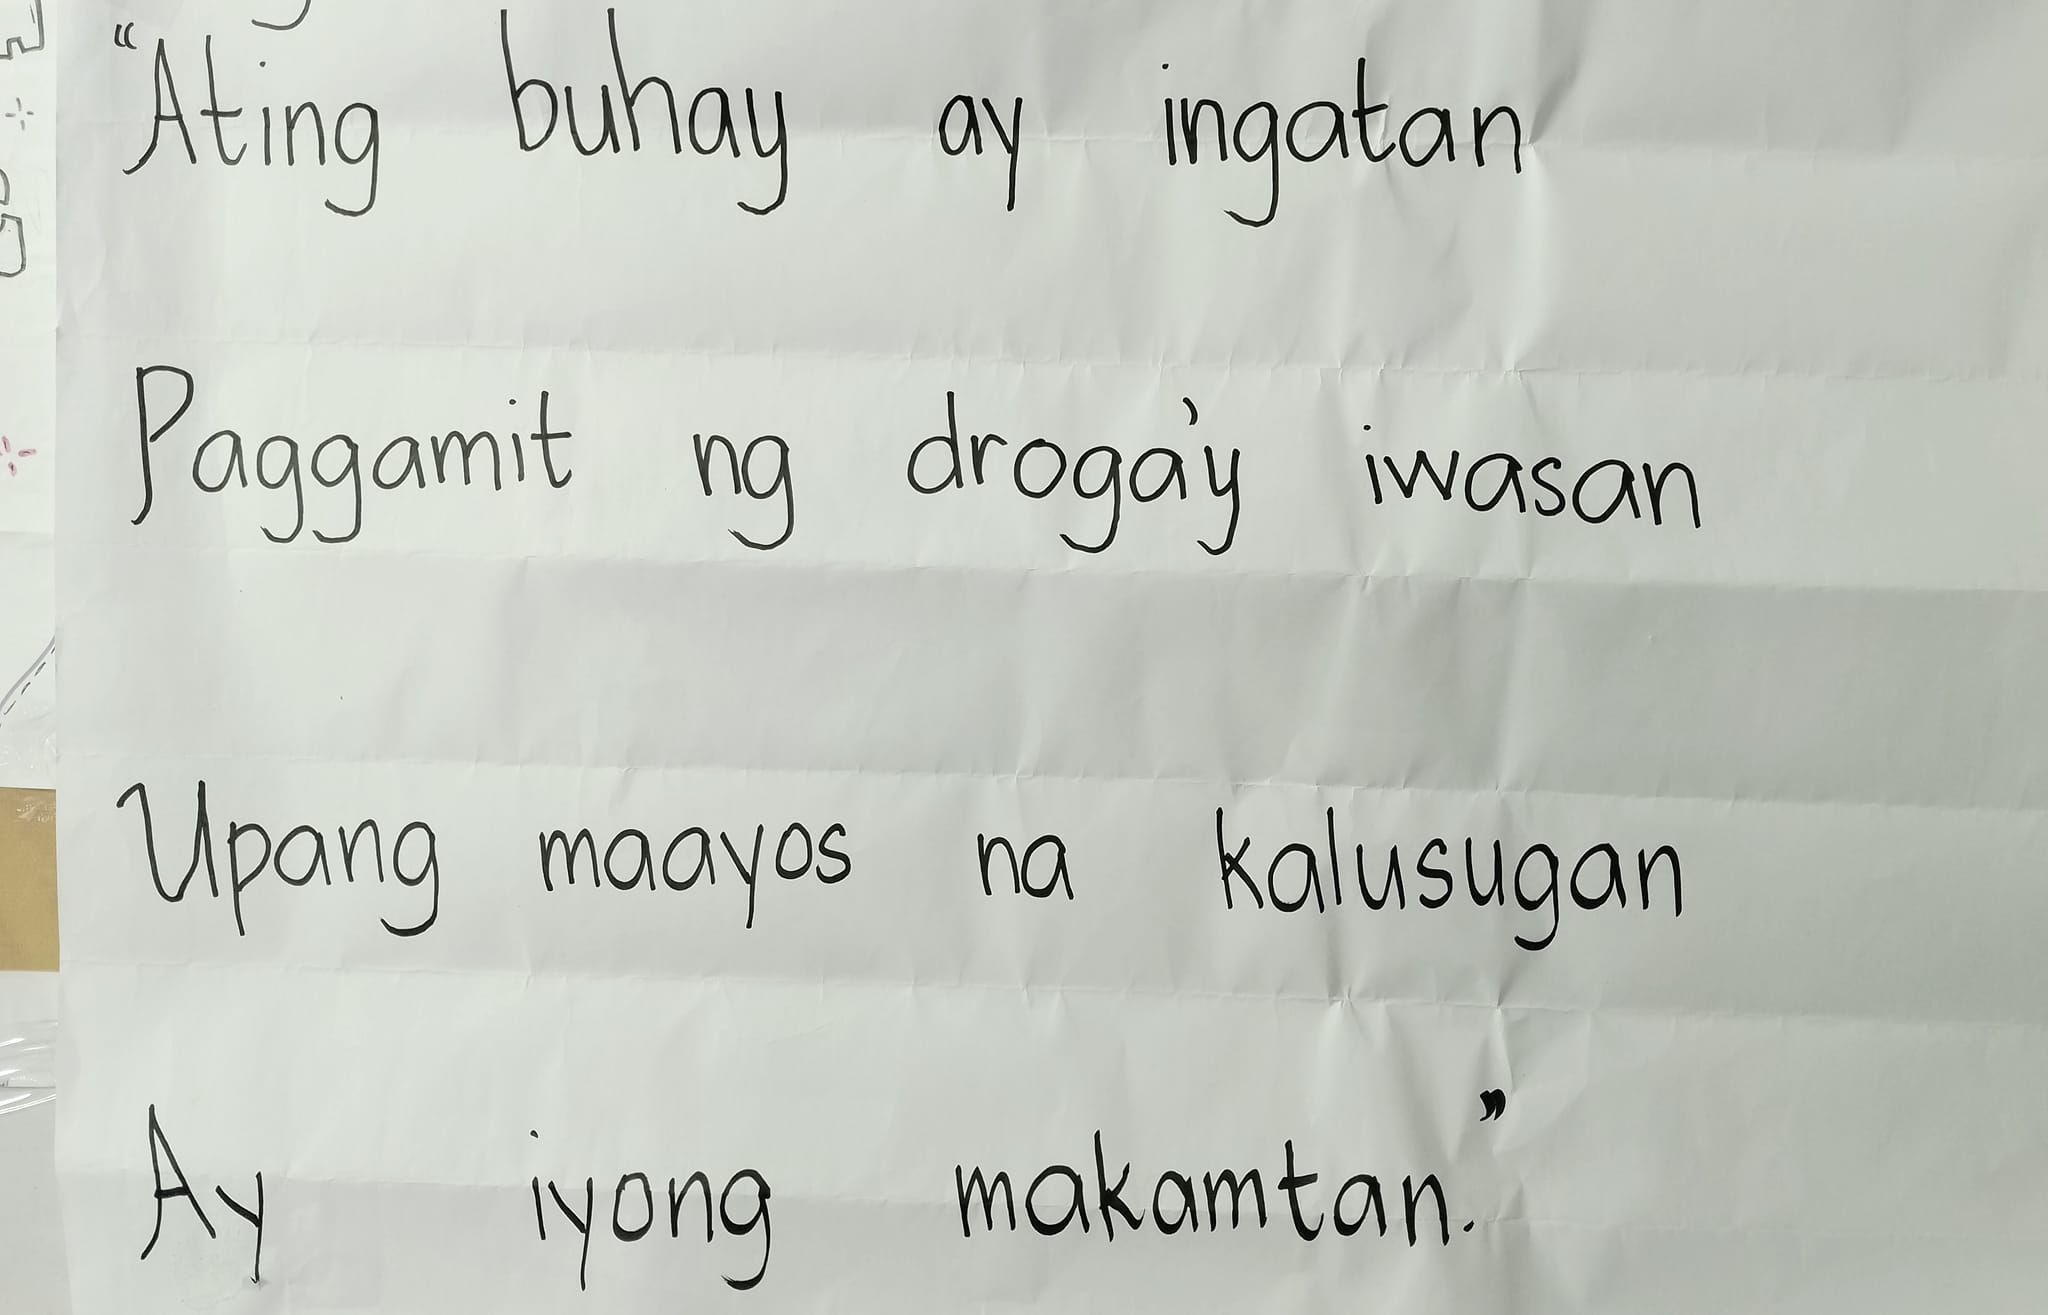 “Ating buhay ay ingatan
Paggamit ng droga'y iwasan
Upang maayos na kalusugan
Ay iyong makamtan.”